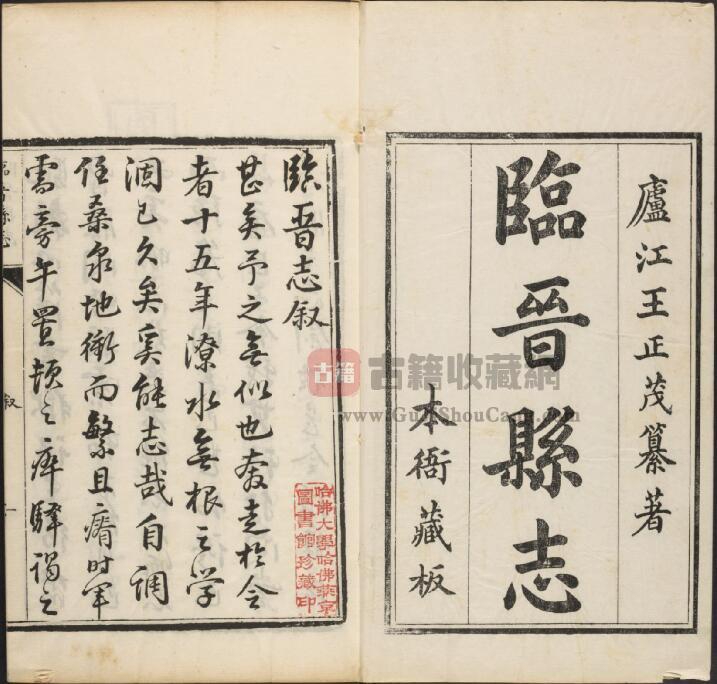 廬江王正茂纂著
臨晉縣志
本衙藏板
臨晉志叙
甚矣予之無似也奔走於令
者十五年潦水無根之学
涸已久矣奚能志哉自調
任桑泉地衝而繁且瘠时军
需旁午置頓之瘁驛謁之
臨晉縣志
叙
哈佛大學哈佛燕京
圖書館珍藏印
古籍
古籍收藏網
www.GujiShouCang.com